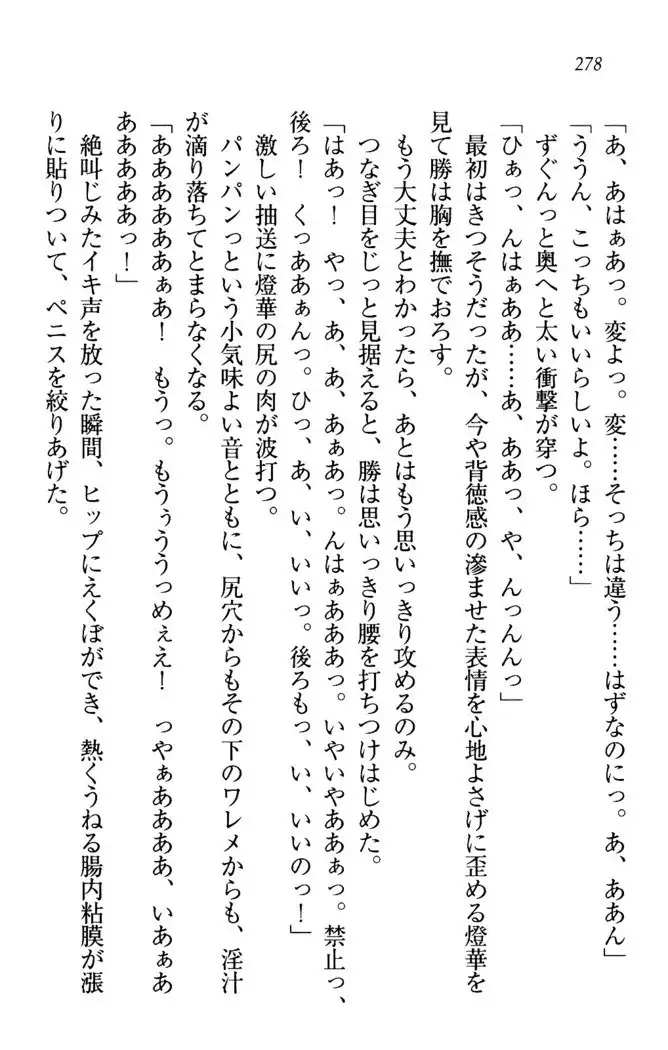 278
「あ、あはぁあっ。変よっ。変……そっちは違う……はずなのにっ。あ、ああん」
「ううん、こっちもいいらしいよ。ほら……」
ずぐんっと奥へと太い衝撃が穿つ。
「ひぁっ、んはぁああ……あ、ああっ、や、んっんんっ」
最初はきつそうだったが、今や背徳感の滲ませた表情を心地よさげに歪める燈華を
見て勝は胸を撫でおろす。
もう大丈夫とわかったら、あとはもう思いっきり攻めるのみ。
つなぎ目をじっと見据えると、勝は思いっきり腰を打ちつけはじめた。
「はあっ！　やっ、あ、あ、あぁあっ。んはぁあああっ。いやいやああぁっ。禁止っ、
後ろ！　くっああぁんっ。ひっ、あ、い、いいっ。後ろもっ、い、いいのっ！」
激しい抽送に燈華の尻の肉が波打つ。
パンパンっという小気味よい音とともに、尻穴からもその下のワレメからも、淫汁
が滴り落ちてとまらなくなる。
「あああああああぁあ！　もうっ。もうぅううっめぇえ！　っやぁああああ、いあぁあ
ああああああっ！」
絶叫じみたイキ声を放った瞬間、ヒップにえくぼができ、熱くうねる腸内粘膜が漲
りに貼りついて、ペニスを絞りあげた。